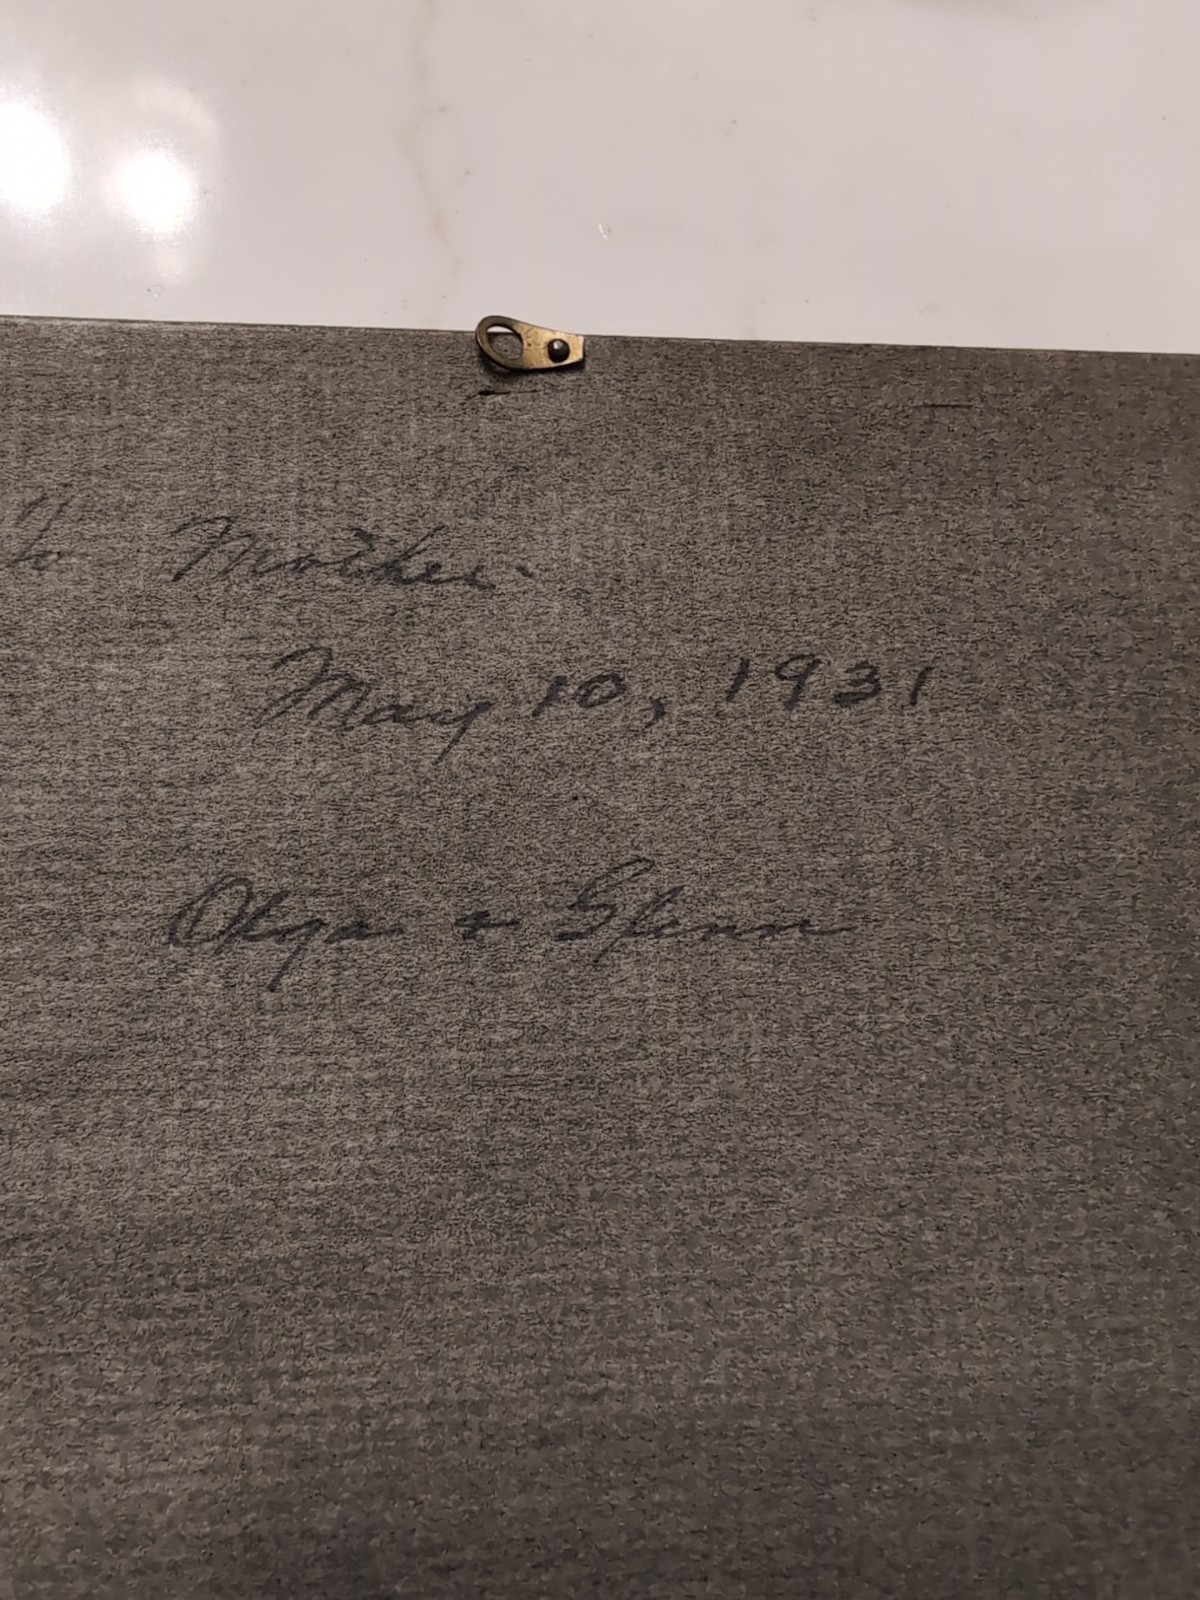 To Mother.
May 10, 1931
Olga + Glenn